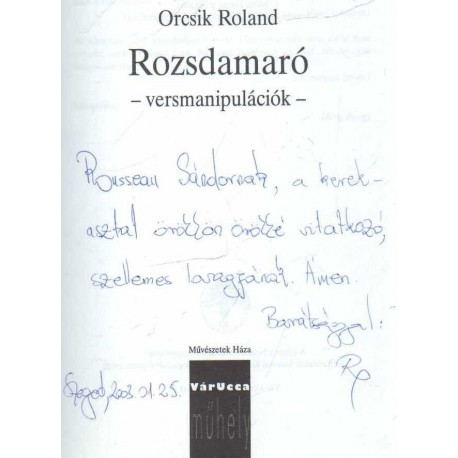 Orcsik Roland
Rozsdamaró
– versmanipulációk –
Rousseau Sándornak, a kerek-
asztal örökkön örökké vitatkozó,
szellemes lovagjának. Ámen.
Barátsággal:
Művészetek Háza
VárUcca
műhely
Szeged, 2003.01.25.